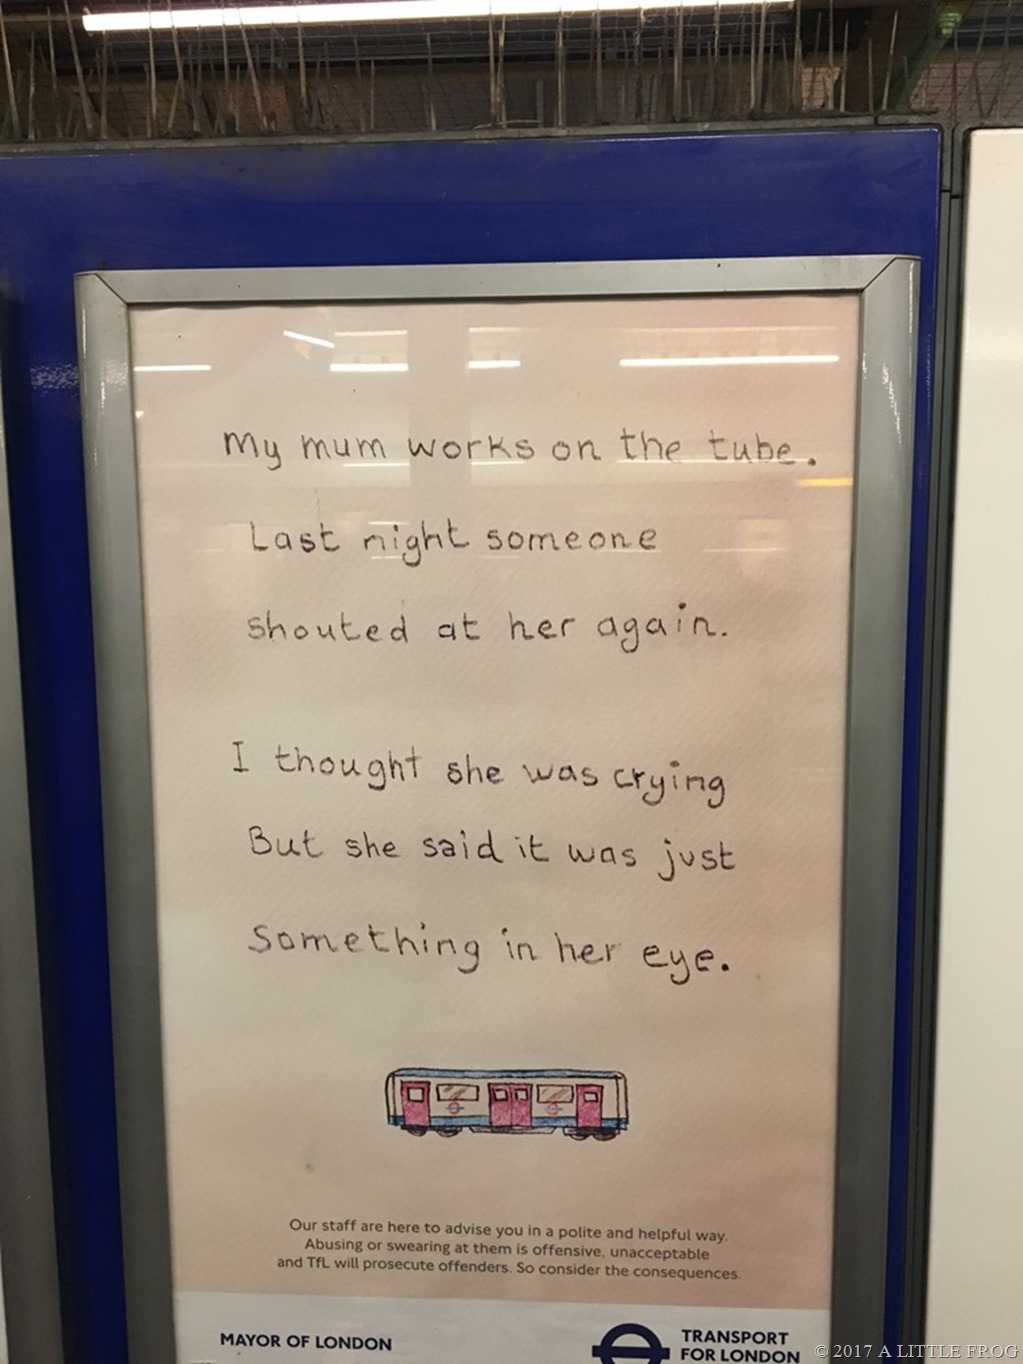 My mum works on the tube.
Last night someone
shouted at her again.
I thought she was crying
But she said it was just
something in her eye.
Our staff are here to advise you in a polite and helpful way.
Abusing or swearing at them is offensive, unacceptable
and TfL will prosecute offenders. So consider the consequences.
MAYOR OF LONDON
TRANSPORT
FOR LONDON
© 2017 A LITTLE FROG